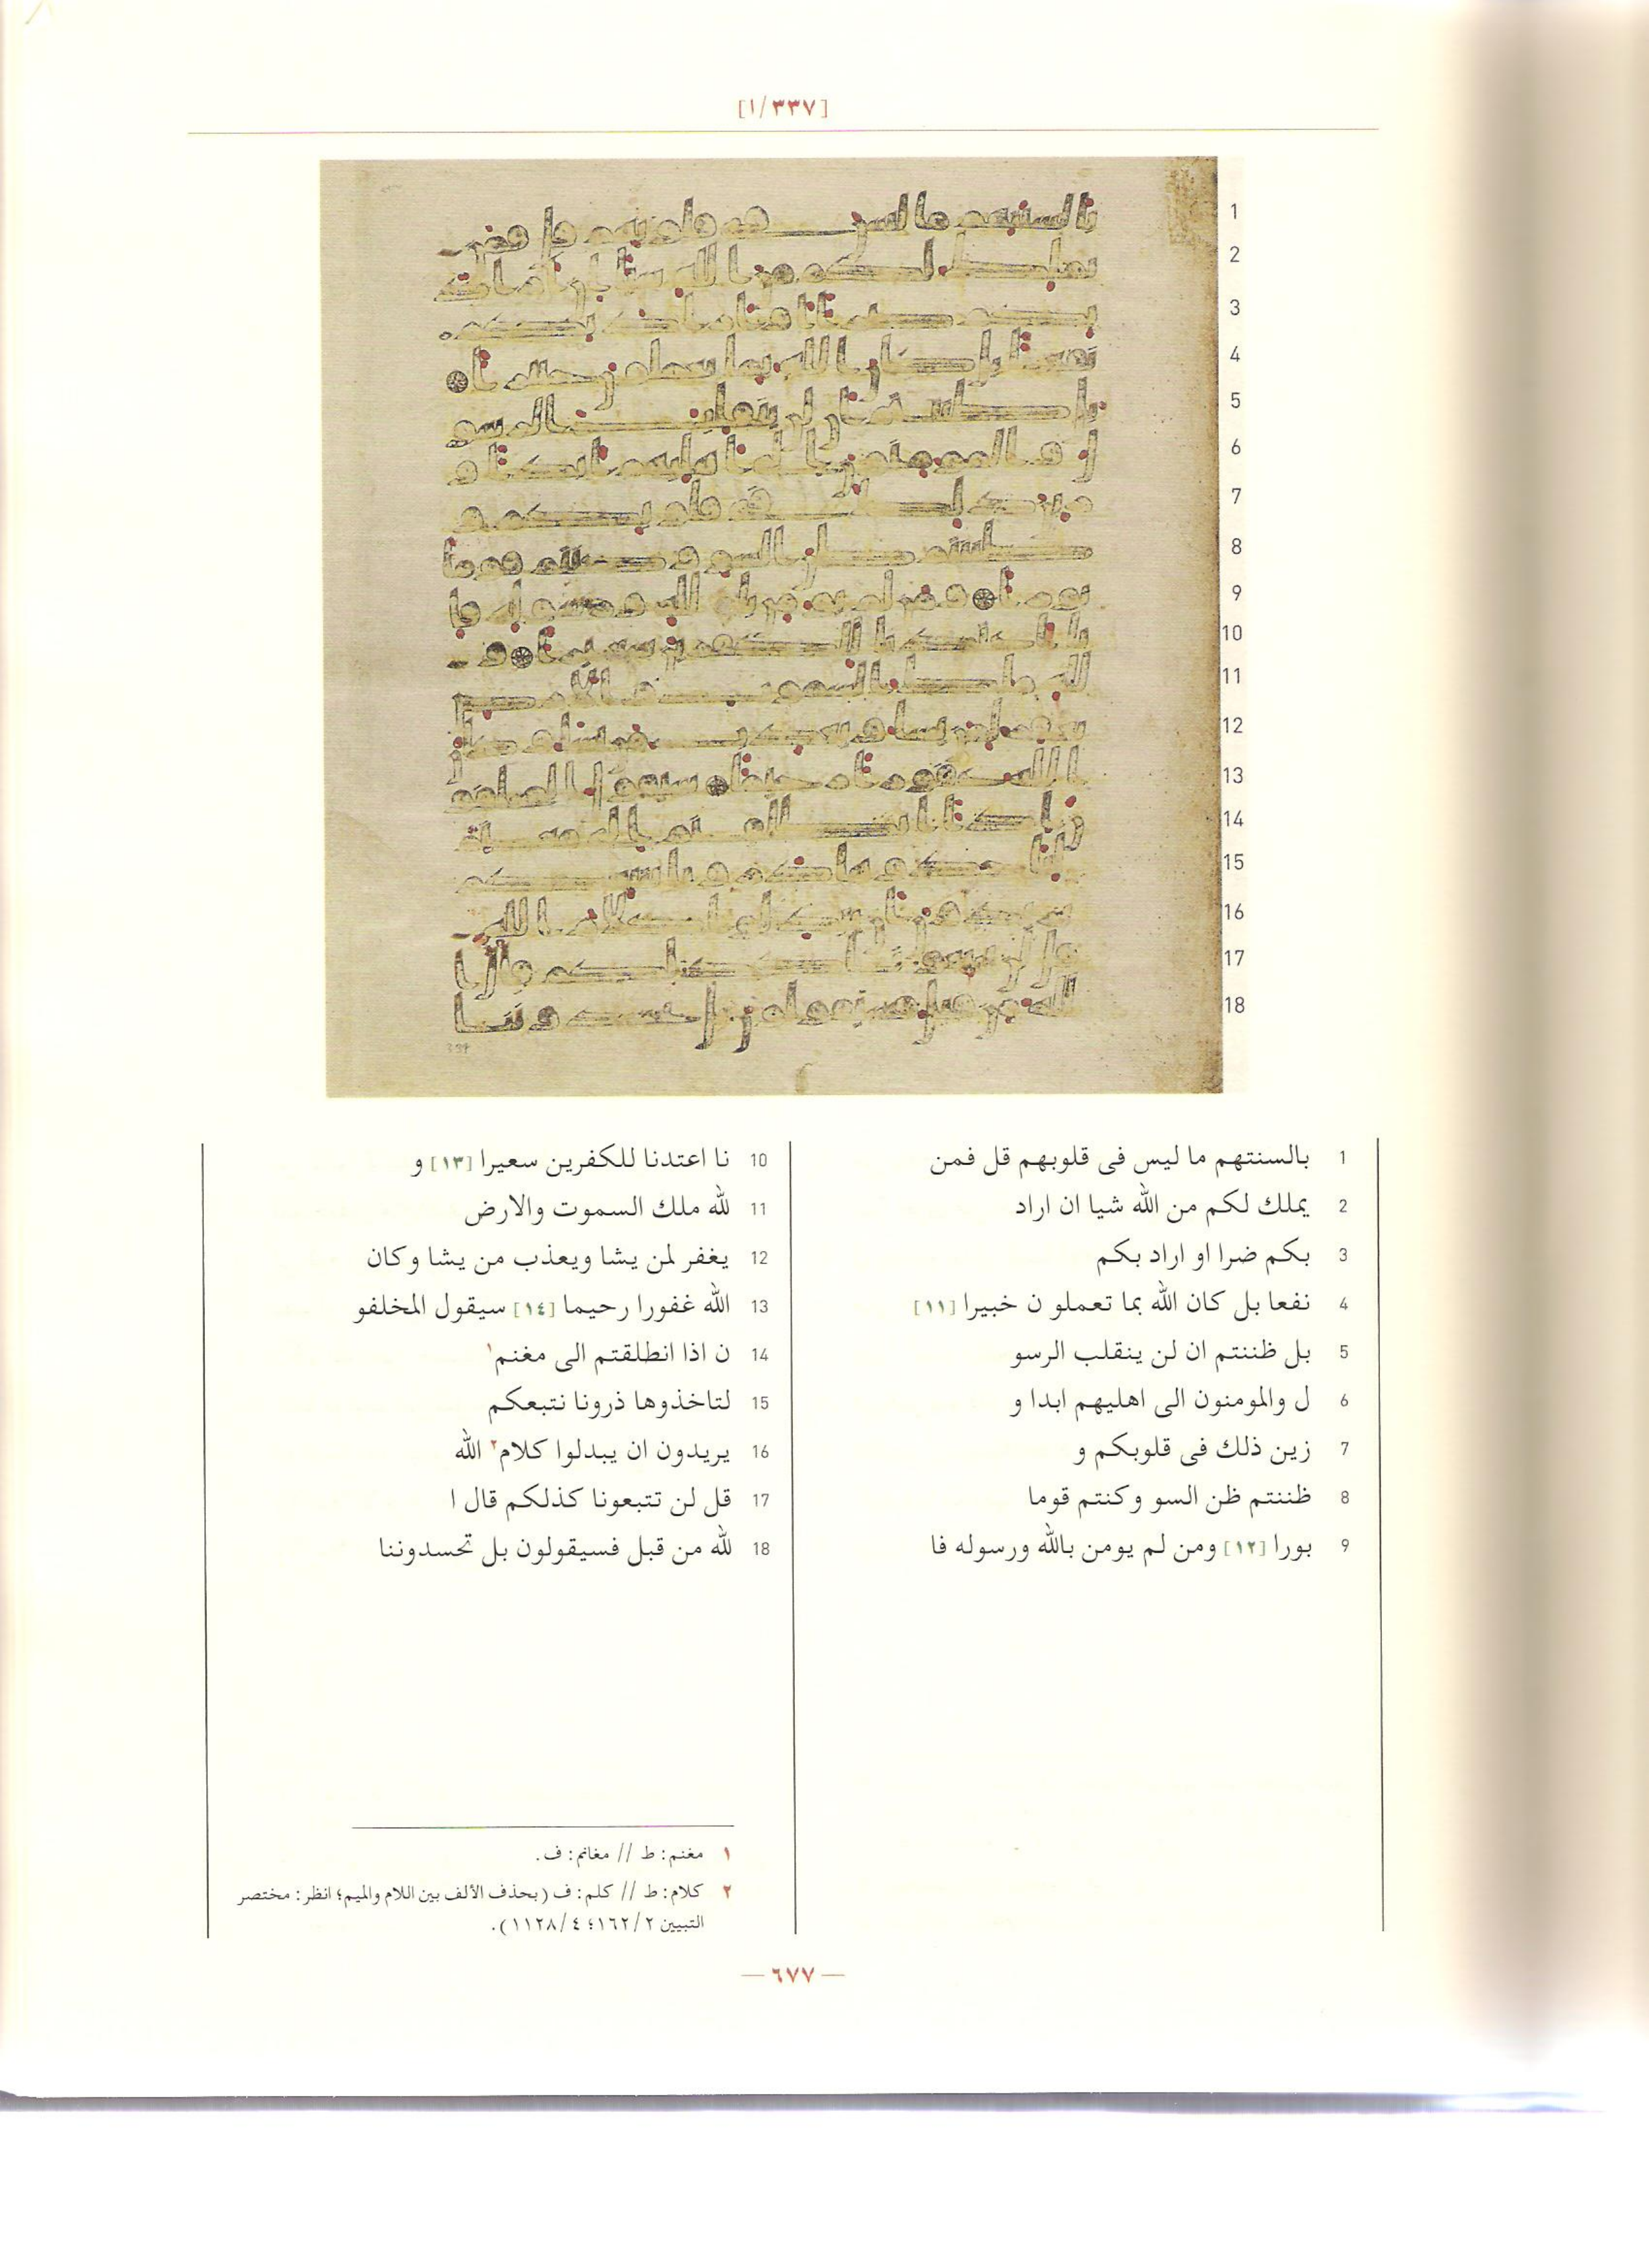 [٣٣٧/١]
1
2
3
4
5
6
7
8
9
10
11
12
13
14
15
16
17
18
1 بالسنتهم ما ليس فى قلوبهم قل فمن
2 يملك لكم من الله شيا ان اراد
3 بكم ضرا او اراد بكم
4 نفعا بل كان الله بما تعملو ن خبيرا [١١]
5 بل ظننتم ان لن ينقلب الرسو
6 ل والمومنون الى اهليهم ابدا و
7 زين ذلك فى قلوبكم و
8 ظننتم ظن السو وكنتم قوما
9 بورا [١٢] ومن لم يومن بالله ورسوله فا
10 نا اعتدنا للكفرين سعيرا [١٣] و
11 لله ملك السموت والارض
12 يغفر لمن يشا ويعذب من يشا وكان
13 الله غفورا رحيما [١٤] سيقول المخلفو
14 ن اذا انطلقتم الى مغنم١
15 لتاخذوها ذرونا نتبعكم
16 يريدون ان يبدلوا كلام٢ الله
17 قل لن تتبعونا كذلكم قال ا
18 لله من قبل فسيقولون بل تحسدوننا
١ مغنم: ط // مغانم: ف.
٢ كلام: ط // كلم: ف (بحذف الألف بين اللام والميم؛ انظر: مختصر
التبيين ١٦٢/٢؛ ١١٢٨/٤).
— ٦٧٧ —